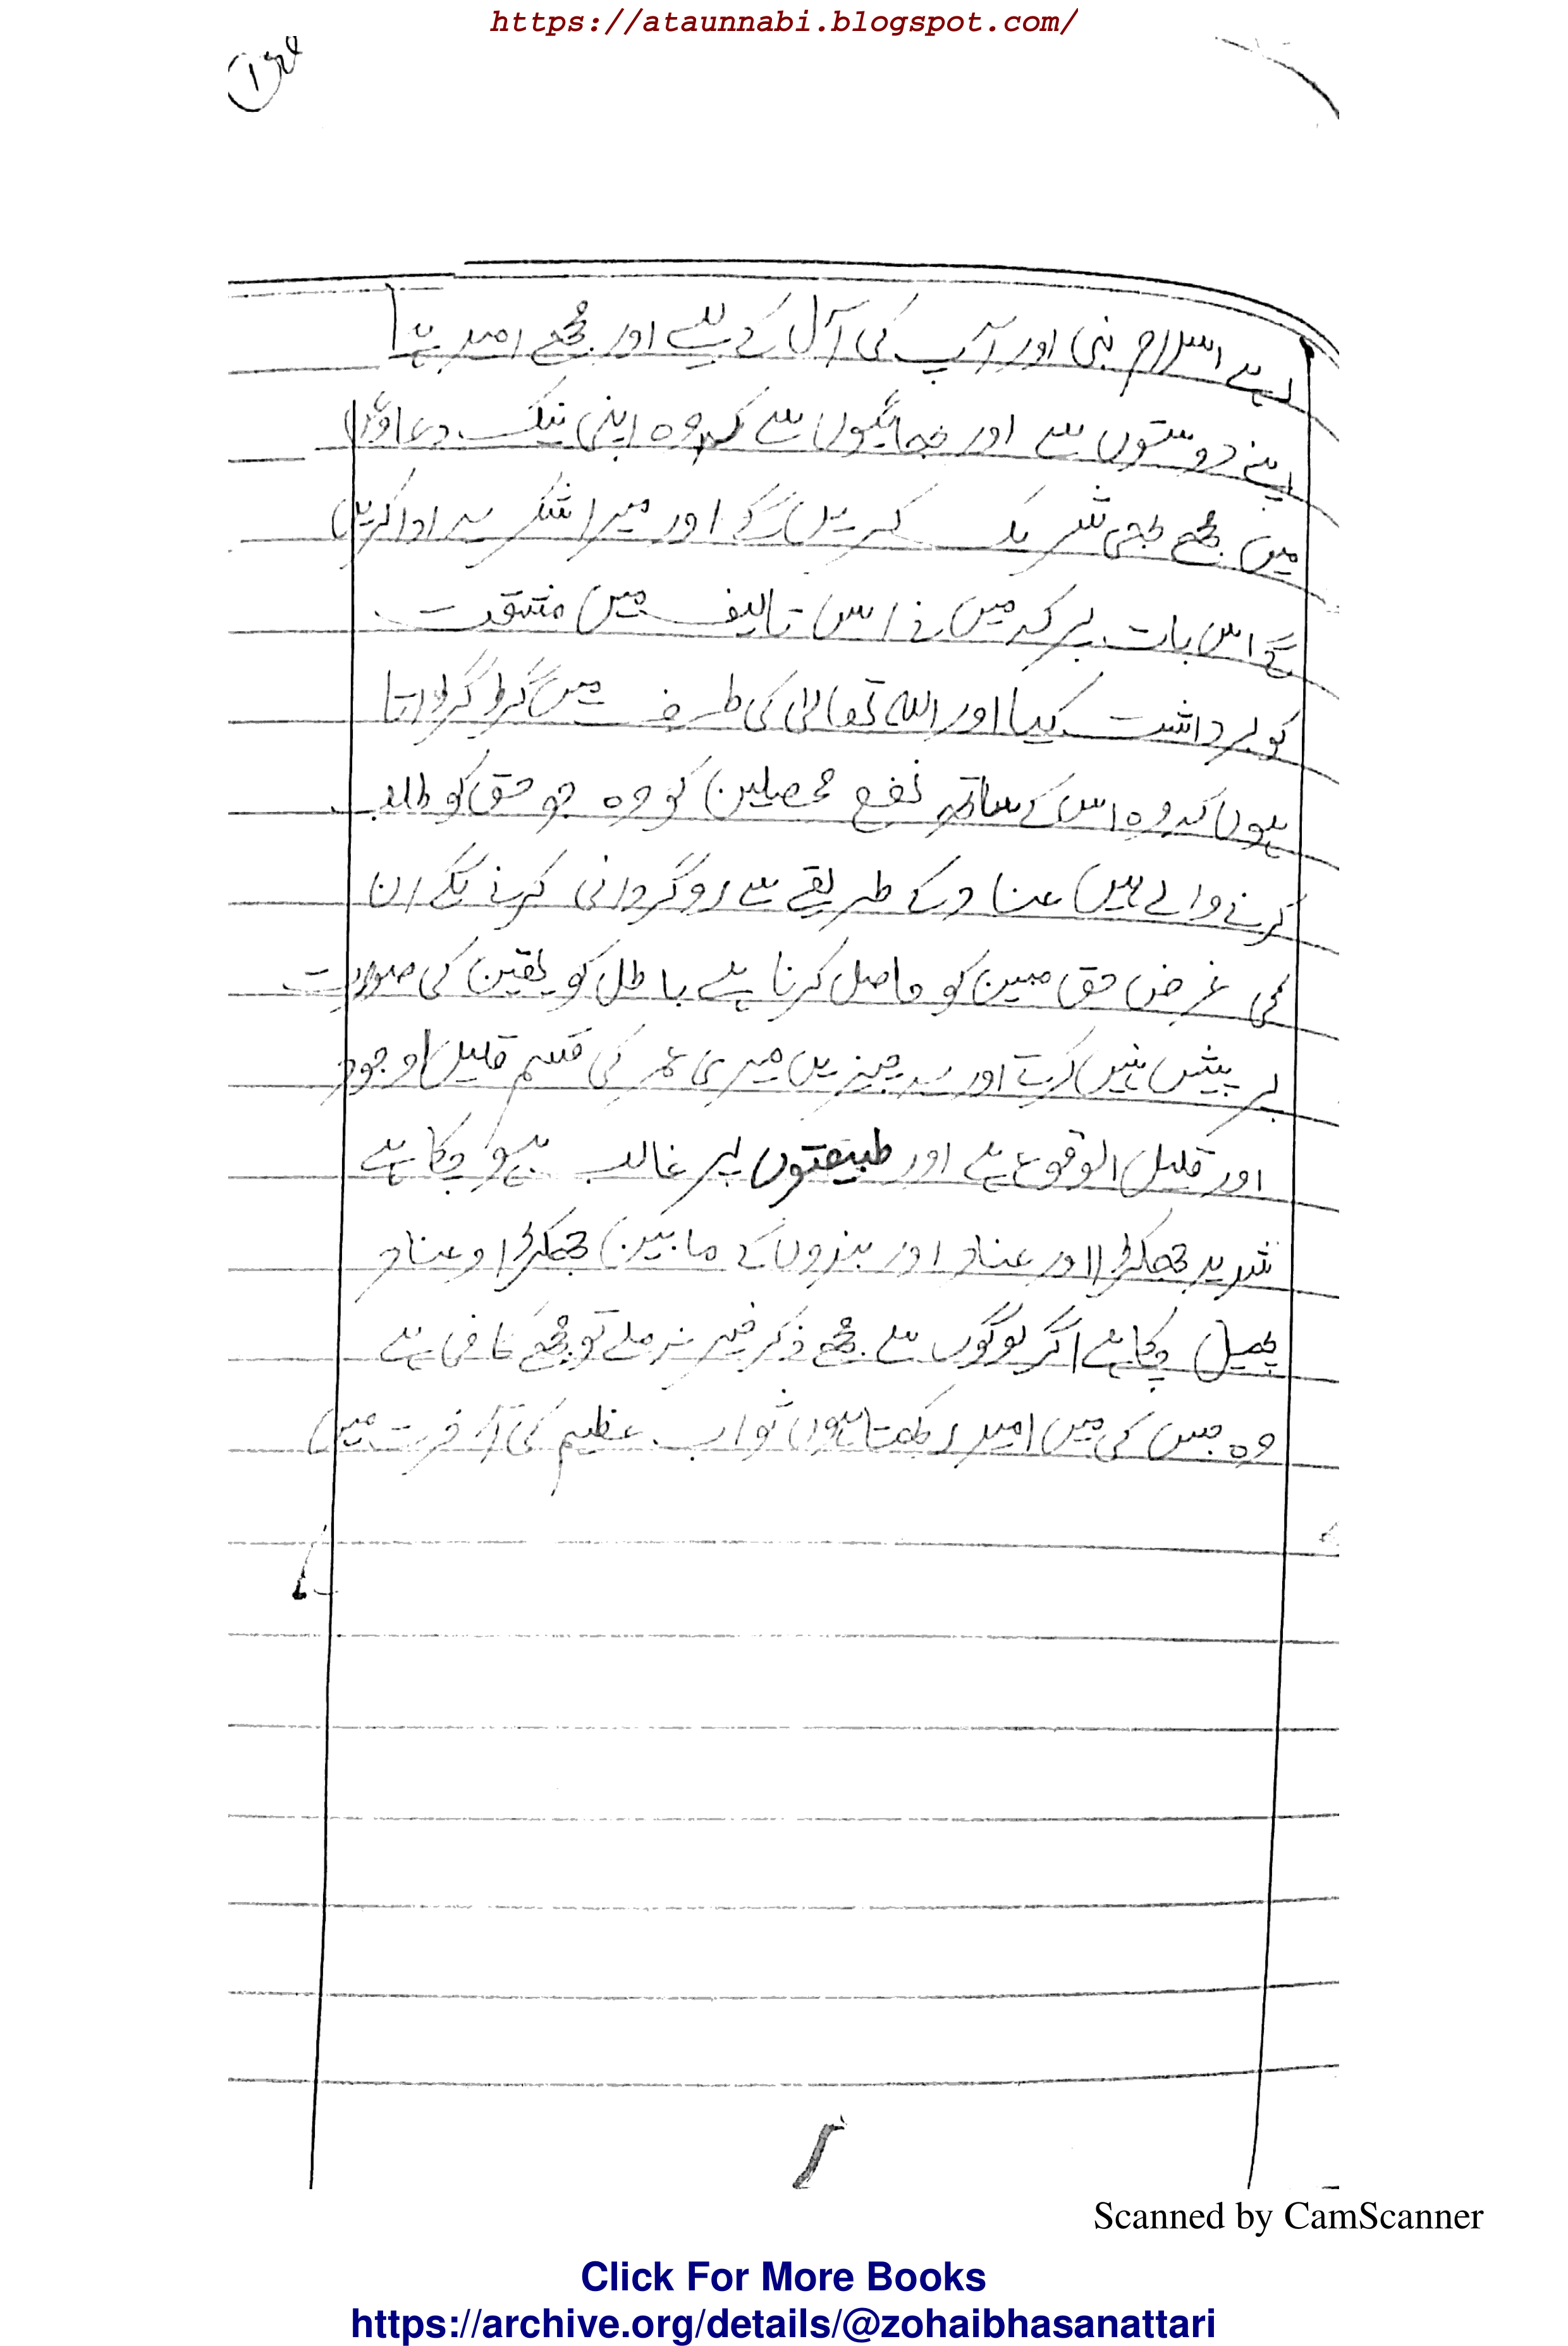 https://ataunnabi.blogspot.com/
ہے اسلام نبی اور آپ کی آل کے لیے اور مجھے امید ہے
اپنے دوستوں سے اور بھائیوں سے کہ وہ اپنی نیک دعاؤں
میں مجھے بھی شریک کریں گے اور میرا شکریہ ادا کریں
گے اس بات پر کہ میں نے اس تالیف میں مشقت
کو برداشت کیا اور اللہ تعالیٰ کی طرف میں گڑگڑاتا
ہوں کہ وہ اس کے ساتھ نفع محصلین کو وہ جو حق کو طلب
کرنے والے ہیں عناد کے طریقے سے روگردانی کرنے ان
کی غرض حق مبین کو حاصل کرنا ہے باطل کو یقین کی صورت
پر پیش نہیں کرتے اور یہ چیزیں میری عمر کی قسم قلیل وجود
اور قلیل الوقوع ہے اور طبیعتوں پر غالب ہو چکا ہے
شدید جھگڑا اور عناد اور بندوں کے مابین جھگڑا و عناد
پھیل چکا ہے اگر لوگوں سے مجھے ذکر خیر نہ ملے تو مجھے کافی ہے
وہ جس کی میں امید رکھتا ہوں ثواب عظیم کی آخرت میں
Scanned by CamScanner
Click For More Books
https://archive.org/details/@zohaibhasanattari